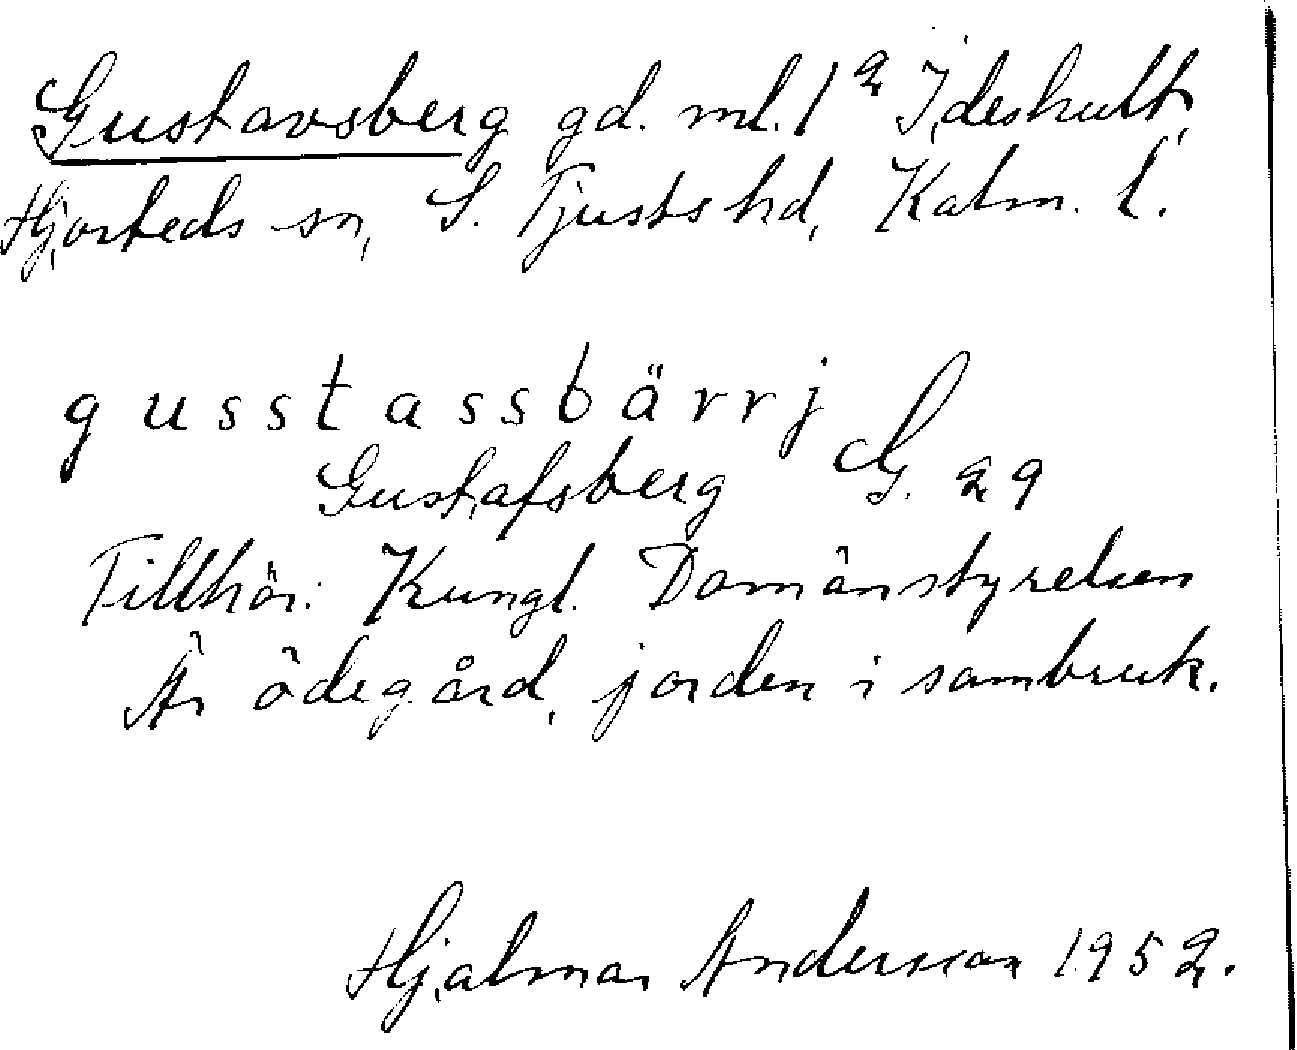 Gustavsberg gd. ml. 1² Ideshult,
Hjorteds sn, S. Tjusts hd, Kalm. l.
gusstassbärrj
Gustafsberg G. 29
Tillhör: Kungl. Domänstyrelsen
Är ödegård, jorden i sambruk.
Hjalmar Andersson 1952.